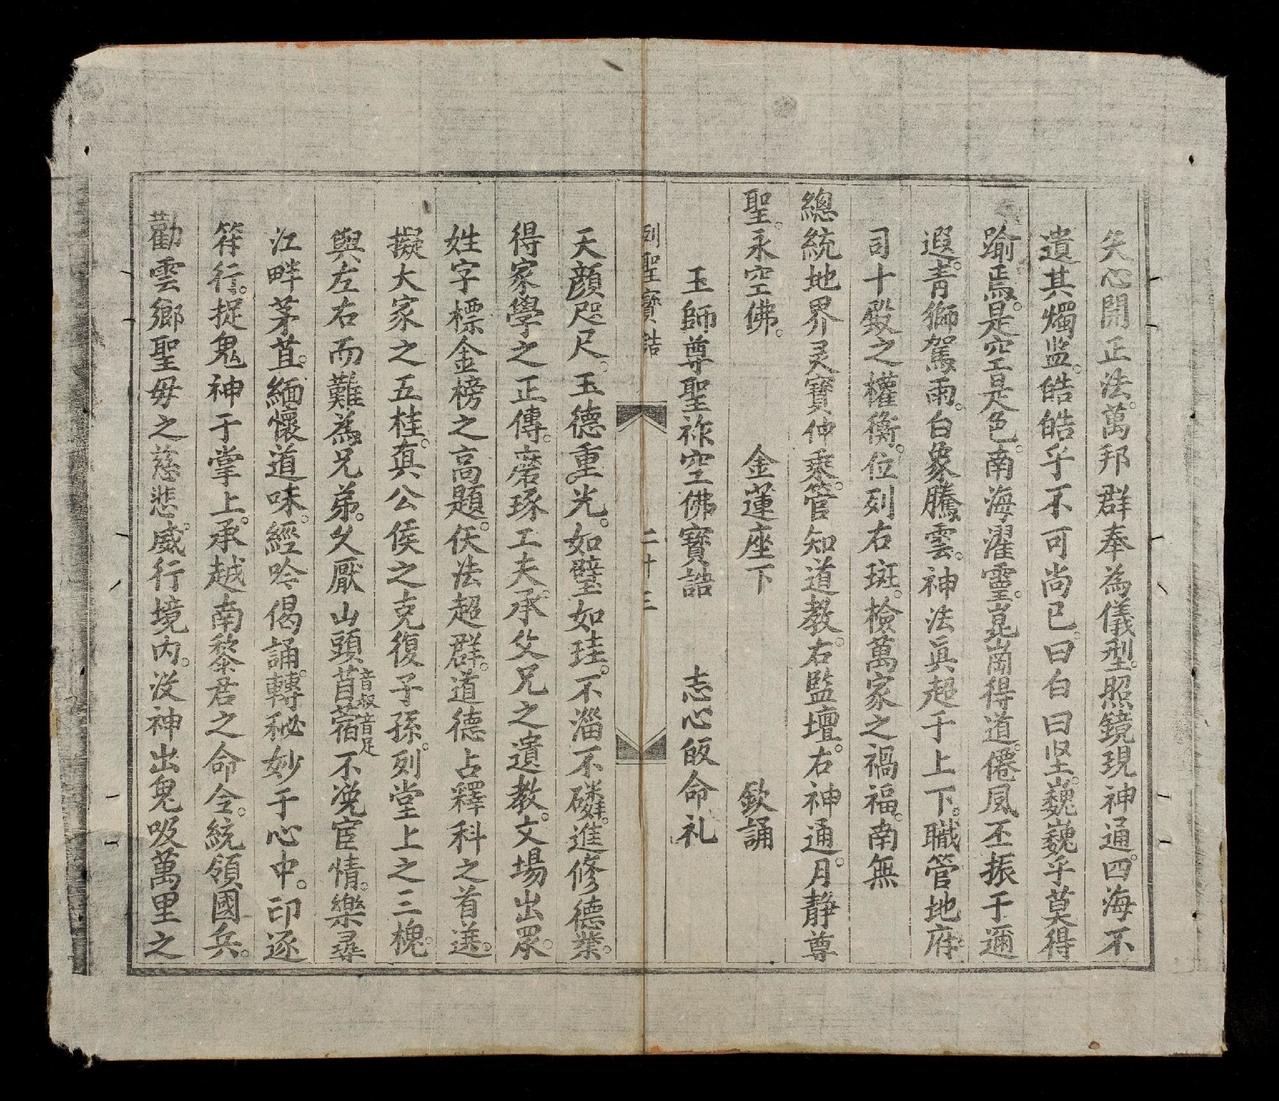 矢心開正法。萬邦群奉為儀型。照鏡現神通。四海不
遺其燭监。皓皓乎不可尚已。曰白曰坚。巍巍乎莫得
踰焉。是空是色。南海濯靈。崑崗得道。僊風丕振于邇
遐。青獅駕雨。白象騰雲。神法眞超于上下。職管地府
司十殿之權衡。位列右班。檢萬家之禍福。南無
總統地界灵寶仲乘。管知道教。右監壇。右神通。月靜尊
聖。永空佛。 金蓮座下 欽誦
玉師尊聖祚空佛寳誥 志心皈命礼
列聖寳誥 二十三
天顏咫尺。玉德重光。如璧如珪。不淄不磷。進修德業。
得家學之正傳。磨琢工夫。承父兄之遺教。文場出眾。
姓字標金榜之高題。伕法超群。道德占釋科之首選。
擬大家之五桂。眞公侯之克復子孫。列堂上之三槐。
與左右而難為兄弟。久厭山頭苜蓿音叔音足不浼宦情。樂尋
江畔茅苴。緬懷道味。經吟偈誦。轉秘妙于心中。印逐
符行。捉鬼神于掌上。承越南黎君之命令。統領國兵。
勸雲鄉聖毋之慈悲。威行境內。没神出鬼。吸萬里之